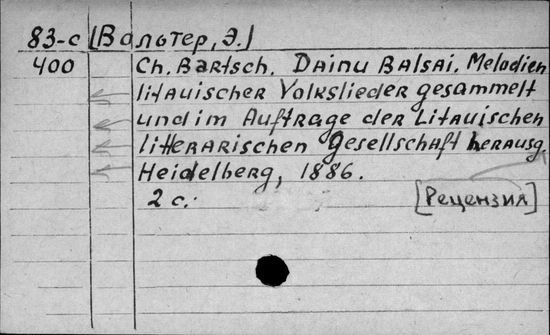 83-с [Вальтер, Э.]
400 Ch. Bartsch. Dainu Balsai. Melodien
litauischer Volkslieder gesammelt
und im Auftrage der Litauischen
litterarischen Gesellschaft herausg.
Heidelberg, 1886.
2 с.
[Рецензия]